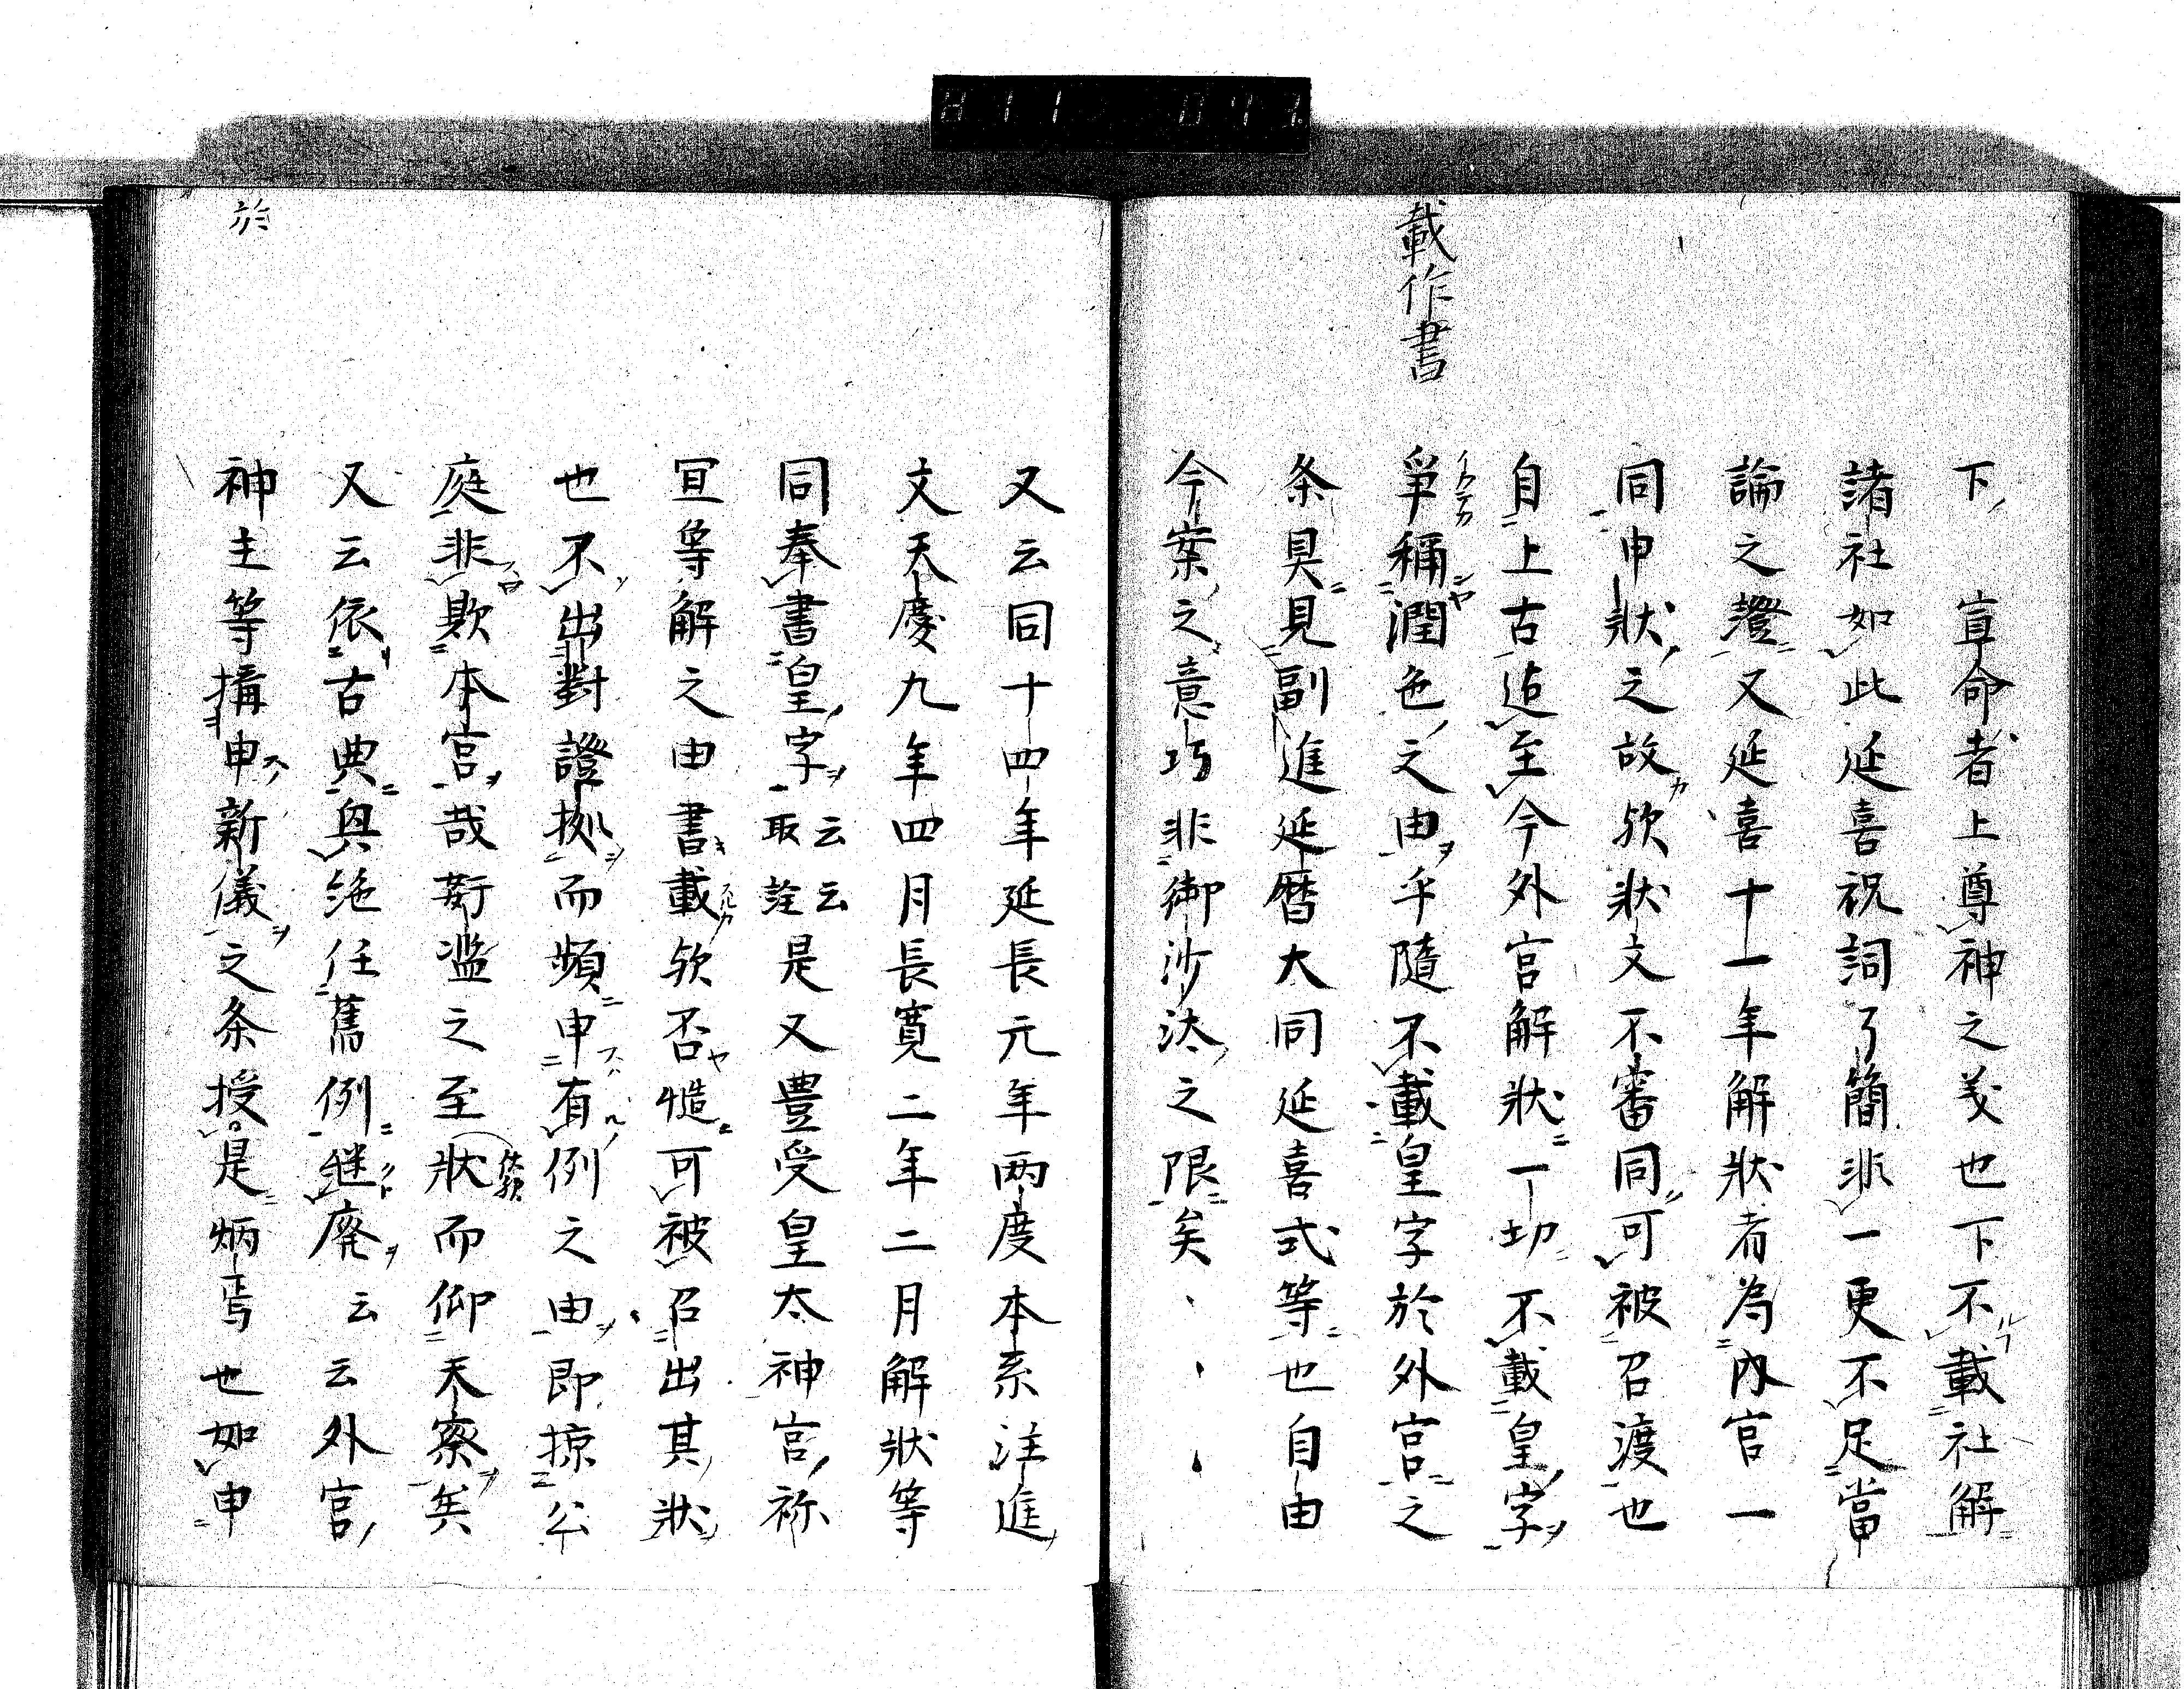 載作書
下宣命者上尊神之義也下不載社解
諸社如此延喜祝詞了簡非一更不足當
論之證又延喜十一年解狀者為内宮一
同申狀之故欤狀文不審同可被召渡也
自上古迄至今外宮解狀一切不載皇字
爭稱潤色之由乎隨不載皇字於外宮之
条具見副進延暦大同延喜式等也自由
今案之意巧非御沙汰之限矣、、、
又云同十四年延長元年兩度本系注進
文天慶九年四月長寛二年二月解狀等
同奉書皇字云云取詮是又豊受皇太神宮祢
宜等解之由書載欤否慥可被召出其狀
也不出對證拠而頻申有例之由即掠公
庭非欺本宮哉姧濫之至狀而仰天察矣
又云依古典興絶任舊例継廃云云外宮
神主等搆申新儀之条授是炳焉也如申
於